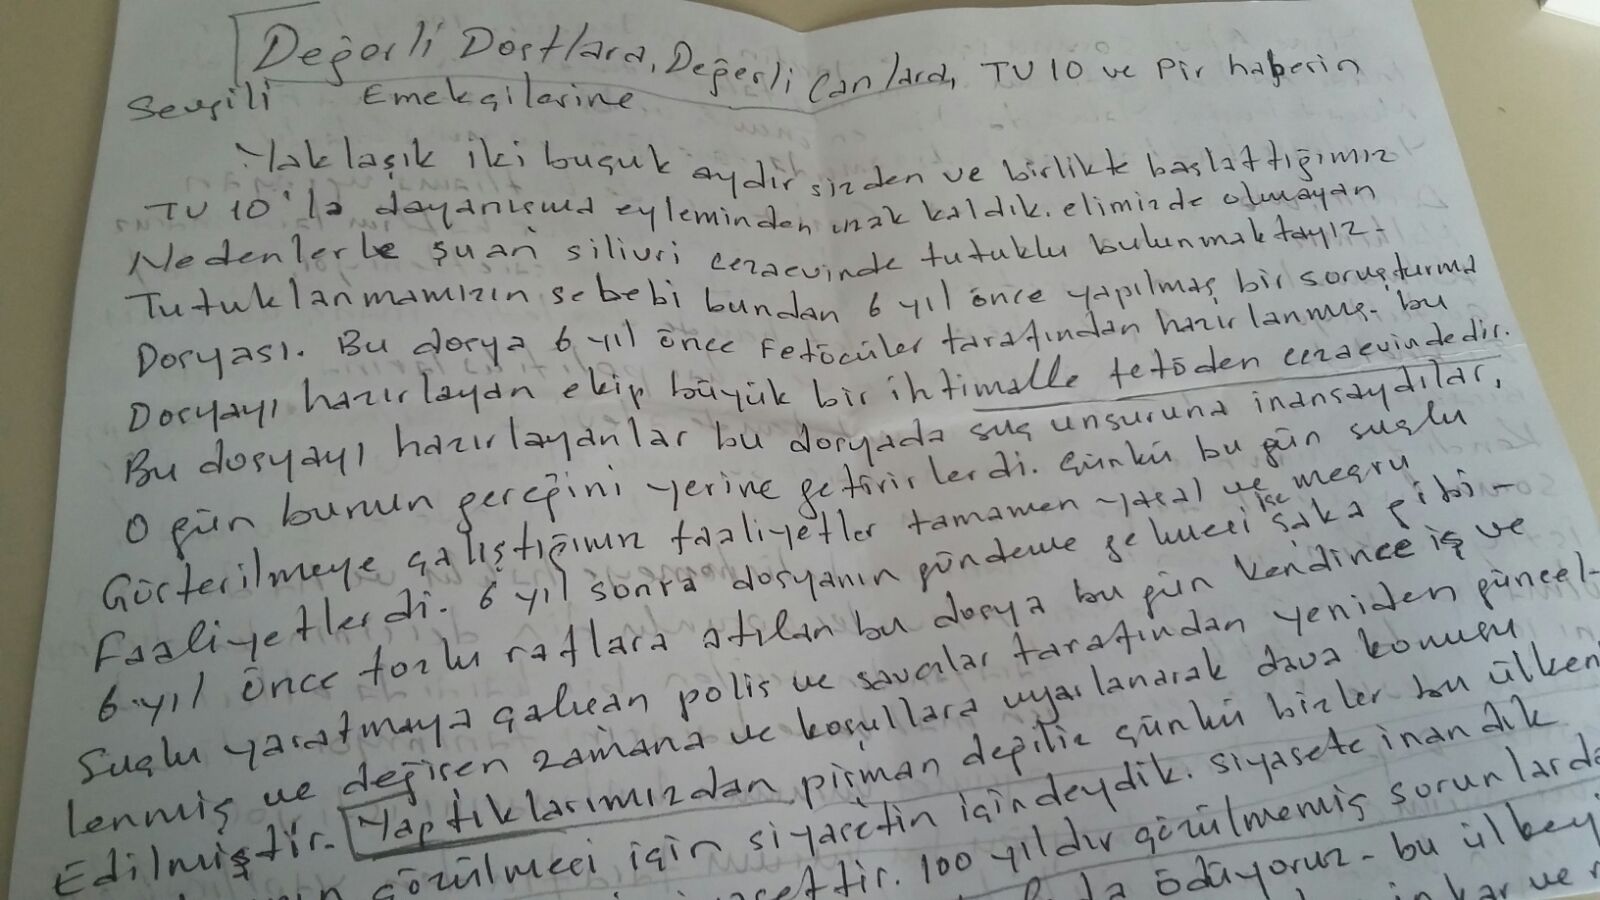 Değerli Dostlara, Değerli Canlara, TV 10 ve Pir haberin
Sevgili Emekçilerine
Yaklaşık iki buçuk aydır sizden ve birlikte başlattığımız
TV 10'la dayanışma eyleminden uzak kaldık. elimizde olmayan
Nedenlerle şuan silivri cezaevinde tutuklu bulunmaktayız.
Tutuklanmamızın sebebi bundan 6 yıl önce yapılmış bir soruşturma
Dosyası. Bu dosya 6 yıl önce Fetöcüler tarafından hazırlanmış. bu
Dosyayı hazırlayan ekip büyük bir ihtimalle fetöden cezaevindedir.
Bu dosyayı hazırlayanlar bu dosyada suç unsuruna inansaydılar,
O gün bunun gereğini yerine getirirlerdi. Çünkü bu gün suçlu
Gösterilmeye çalıştığımız faaliyetler tamamen yasal ve meşru
Faaliyetlerdi. 6 yıl sonra dosyanın gündeme gelmesi ise şaka gibi-
6 yıl önce tozlu raflara atılan bu dosya bu gün kendince iş ve
Suçlu yaratmaya çalışan polis ve savcılar tarafından yeniden güncel-
lenmiş ve değişen zamana ve koşullara uyarlanarak dava konusu
Edilmiştir. Yaptıklarımızdan pişman değiliz çünkü bizler bu ülken
çözülmesi için siyasetin içindeydik. siyasete inandık
100 yıldır çözülmemiş sorunlarda
ödüyoruz- bu ülkey
inkar ve